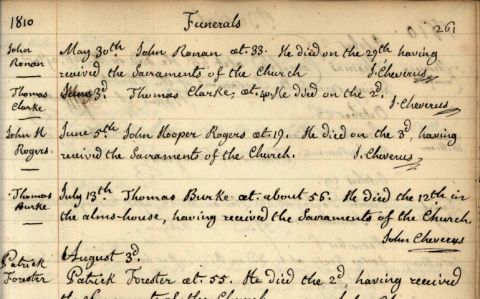 1810 Funerals 261
John Ronan May 30th. John Ronan æt. 33. He died on the 29th having
received the Sacraments of the Church J. Cheverus
Thomas Clarke June 3d. Thomas Clarke, æt. 40. He died on the 2d.
J. Cheverus
John H Rogers June 5th John Hooper Rogers æt. 19. He died on the 3d, having
received the Sacraments of the Church. J. Cheverus
Thomas Burke July 13th. Thomas Burke æt. about 56. He died the 12th in
the alms-house, having received the Sacraments of the Church.
John Cheverus
August 3d
Patrick Forester Patrick Forester æt. 55. He died the 2d, having received